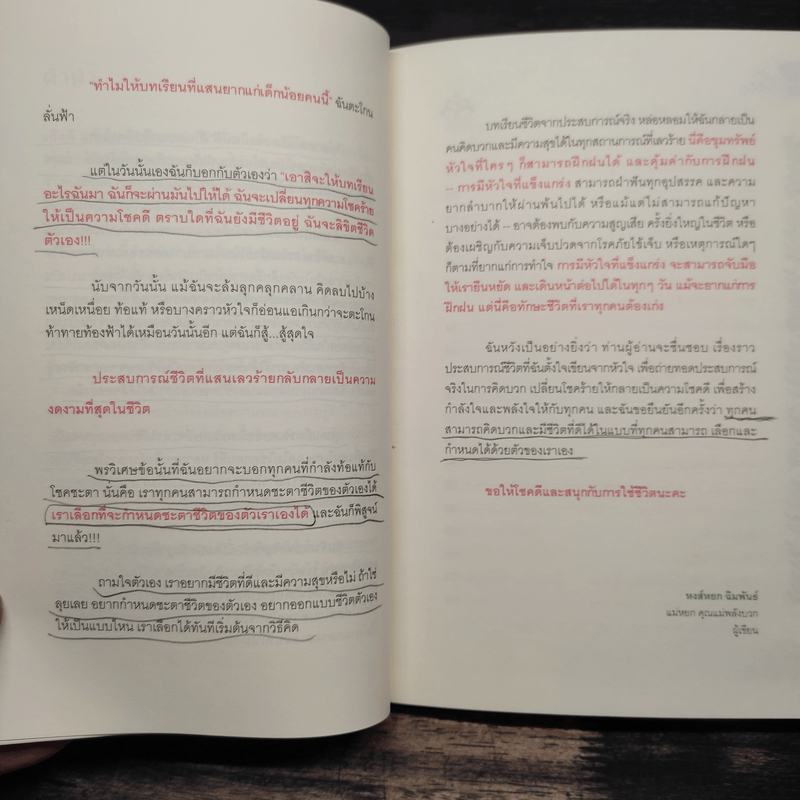 "ทำไมให้บทเรียนที่แสนยากแก่เด็กน้อยคนนี้" ฉันตะโกน
ลั่นฟ้า
แต่ในวันนั้นเองฉันก็บอกกับตัวเองว่า "เอาสิจะให้บทเรียน
อะไรฉันมา ฉันก็จะผ่านมันไปให้ได้ ฉันจะเปลี่ยนทุกความโชคร้าย
ให้เป็นความโชคดี ตราบใดที่ฉันยังมีชีวิตอยู่ ฉันจะลิขิตชีวิต
ตัวเอง!!!
นับจากวันนั้น แม้ฉันจะล้มลุกคลุกคลาน คิดลบไปบ้าง
เหน็ดเหนื่อย ท้อแท้ หรือบางคราวหัวใจก็อ่อนแอเกินกว่าจะตะโกน
ท้าทายท้องฟ้าได้เหมือนวันนั้นอีก แต่ฉันก็สู้...สู้สุดใจ
ประสบการณ์ชีวิตที่แสนเลวร้ายกลับกลายเป็นความ
งดงามที่สุดในชีวิต
พรวิเศษข้อนั้นที่ฉันอยากจะบอกทุกคนที่กำลังท้อแท้กับ
โชคชะตา นั่นคือ เราทุกคนสามารถกำหนดชะตาชีวิตของตัวเองได้
เราเลือกที่จะกำหนดชะตาชีวิตของตัวเราเองได้ และฉันก็พิสูจน์
มาแล้ว!!!
ถามใจตัวเอง เราอยากมีชีวิตที่ดีและมีความสุขหรือไม่ ถ้าใช่
ลุยเลย อยากกำหนดชะตาชีวิตของตัวเอง อยากออกแบบชีวิตตัวเอง
ให้เป็นแบบไหน เราเลือกได้ทันทีเริ่มต้นจากวิธีคิด
บทเรียนชีวิตจากประสบการณ์จริง หล่อหลอมให้ฉันกลายเป็น
คนคิดบวกและมีความสุขได้ในทุกสถานการณ์ที่เลวร้าย นี่คือขุมทรัพย์
หัวใจที่ใครๆ ก็สามารถฝึกฝนได้ และคุ้มค่ากับการฝึกฝน
– การมีหัวใจที่แข็งแกร่ง สามารถฝ่าฟันทุกอุปสรรค และความ
ยากลำบากให้ผ่านพ้นไปได้ หรือแม้แต่ไม่สามารถแก้ปัญหา
บางอย่างได้ – อาจต้องพบกับความสูญเสีย ครั้งยิ่งใหญ่ในชีวิต หรือ
ต้องเผชิญกับความเจ็บปวดจากโรคภัยไข้เจ็บ หรือเหตุการณ์ใดๆ
ก็ตามที่ยากแก่การทำใจ การมีหัวใจที่แข็งแกร่ง จะสามารถจับมือ
ให้เรายืนหยัด และเดินหน้าต่อไปได้ในทุกๆ วัน แม้จะยากแก่การ
ฝึกฝน แต่นี่คือทักษะชีวิตที่เราทุกคนต้องเก่ง
ฉันหวังเป็นอย่างยิ่งว่า ท่านผู้อ่านจะชื่นชอบ เรื่องราว
ประสบการณ์ชีวิตที่ฉันตั้งใจเขียนจากหัวใจ เพื่อถ่ายทอดประสบการณ์
จริงในการคิดบวก เปลี่ยนโชคร้ายให้กลายเป็นความโชคดี เพื่อสร้าง
กำลังใจและพลังใจให้กับทุกคน และฉันขอยืนยันอีกครั้งว่า ทุกคน
สามารถคิดบวกและมีชีวิตที่ดีได้ในแบบที่ทุกคนสามารถ เลือกและ
กำหนดได้ด้วยตัวของเราเอง
ขอให้โชคดีและสนุกกับการใช้ชีวิตนะคะ
หงส์หยก ฉิมพันธ์
แม่หยก คุณแม่พลังบวก
ผู้เขียน